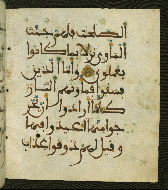 الصلحت فلهم جنت
المأوى نزلا بما كانوا
يعملون وأما الذين
فسقوا فمأويهم النار
كلما أرادوا أن يخر
جوا منها أعيدوا فيها
وقيل لهم ذوقوا عذاب